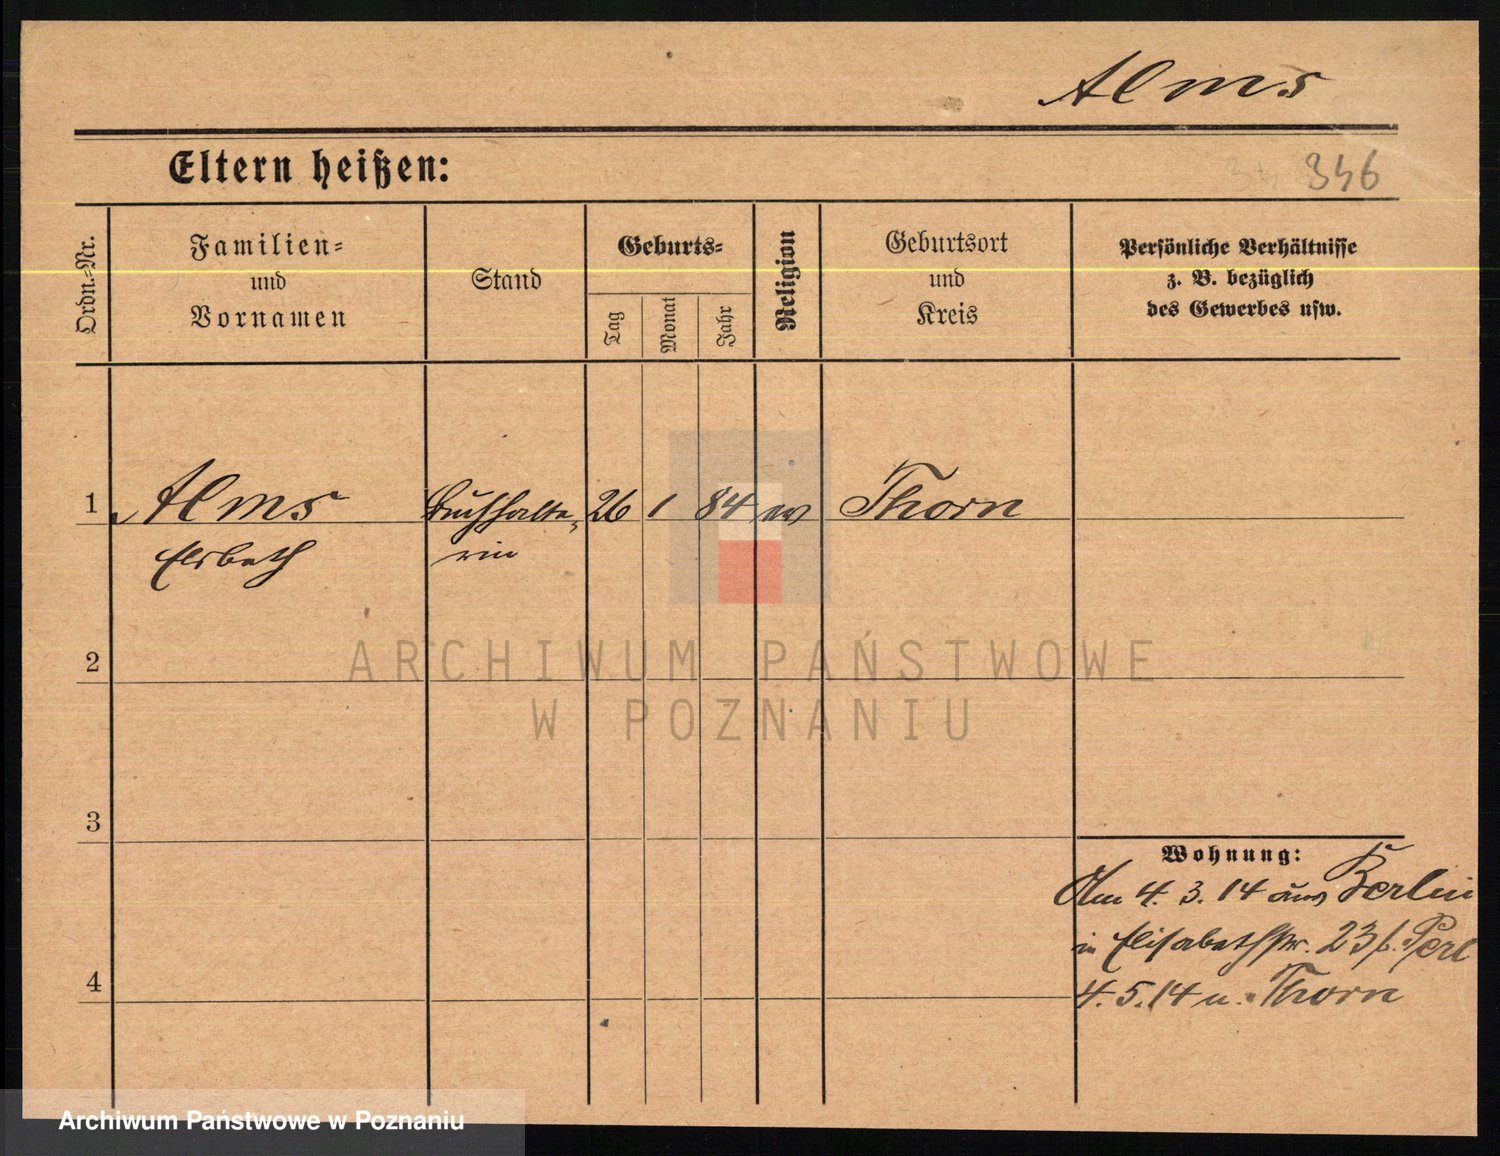 Alms
Eltern heißen:
346
Ordn.-Nr.
Familien-
und
Vornamen
Stand
Geburts-
Tag
Monat
Jahr
Religion
Geburtsort
und
Kreis
Persönliche Verhältnisse
z. B. bezüglich
des Gewerbes usw.
1 Alms Buchhalte- 26 1 84 ev Thorn
Elsbeth rin
2
ARCHIWUM PAŃSTWOWE
W POZNANIU
3
Wohnung:
Am 4. 3. 14 aus Berlin
in Elisabethstr. 23 b. Perl
4
4. 5. 14 n. Thorn
Archiwum Państwowe w Poznaniu